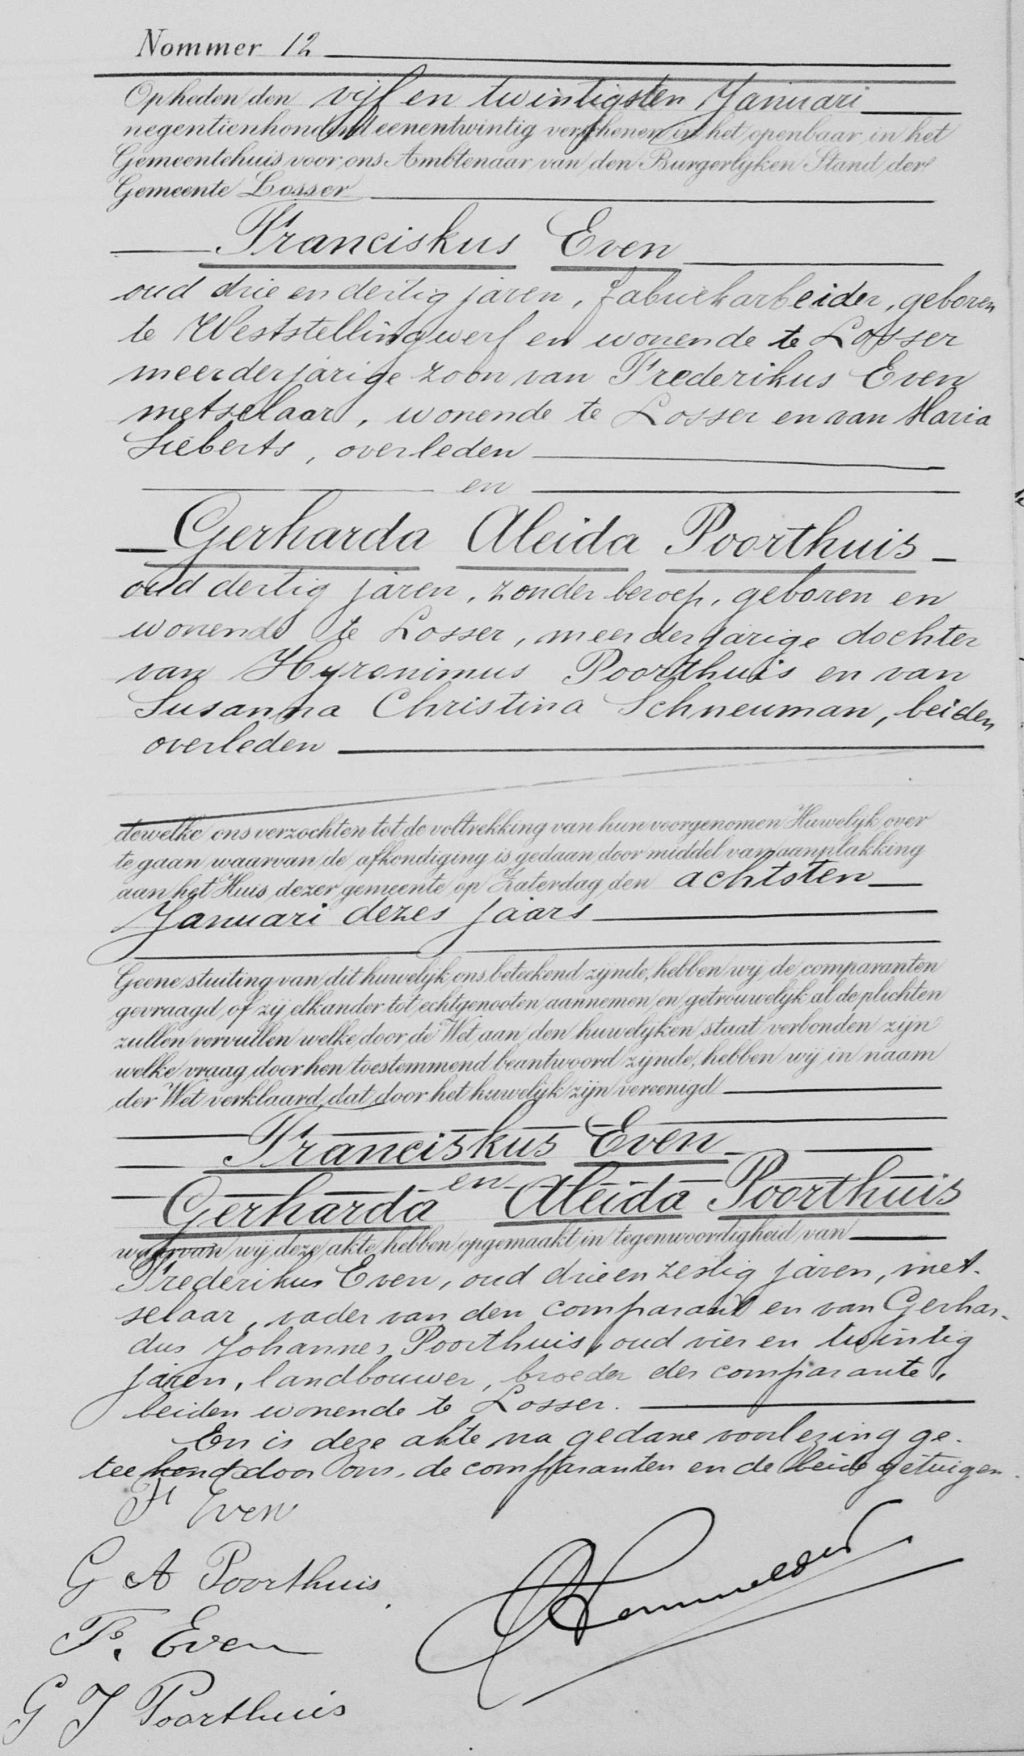 Nommer 12
Op heden den vijf en twintigsten Januari
negentienhonderd eenentwintig verschenen in het openbaar in het
Gemeentehuis voor ons Ambtenaar van den Burgerlijken Stand der
Gemeente Losser
Franciskus Even
oud drie en dertig jaren, fabriekarbeider, geboren
te Weststellingwerf en wonende te Losser
meerderjarige zoon van Frederikus Even
metselaar, wonende te Losser en van Maria
Sieberts, overleden
en
Gerharda Aleida Poorthuis
oud dertig jaren, zonder beroep, geboren en
wonende te Losser, meerderjarige dochter
van Hyronimus Poorthuis en van
Susanna Christina Schneuman, beiden
overleden
dewelke ons verzochten tot de voltrekking van hun voorgenomen Huwelijk over
te gaan waarvan de afkondiging is gedaan door middel van aanplakking
aan het Huis dezer gemeente op Zaterdag den achtsten
Januari dezes jaars
Geene stuiting van dit huwelijk ons beteekend zijnde, hebben wij de comparanten
gevraagd of zij elkander tot echtgenooten aannemen en getrouwelijk al de plichten
zullen vervullen welke door de Wet aan den huwelijken staat verbonden zijn
welke vraag door hen toestemmend beantwoord zijnde, hebben wij in naam
der Wet verklaard, dat door het huwelijk zijn vereenigd
Franciskus Even
en
Gerharda Aleida Poorthuis
waarvan wij deze akte hebben opgemaakt in tegenwoordigheid van
Frederikus Even, oud drie en zestig jaren, met-
selaar, vader van den comparant en van Gerhar-
dus Johannes Poorthuis, oud vier en twintig
jaren, landbouwer, broeder der comparante,
beiden wonende te Losser.
En is deze akte na gedane voorlezing ge-
teekend door ons, de comparanten en de beide getuigen.
F Even
G A Poorthuis
Fs. Even
G J Poorthuis